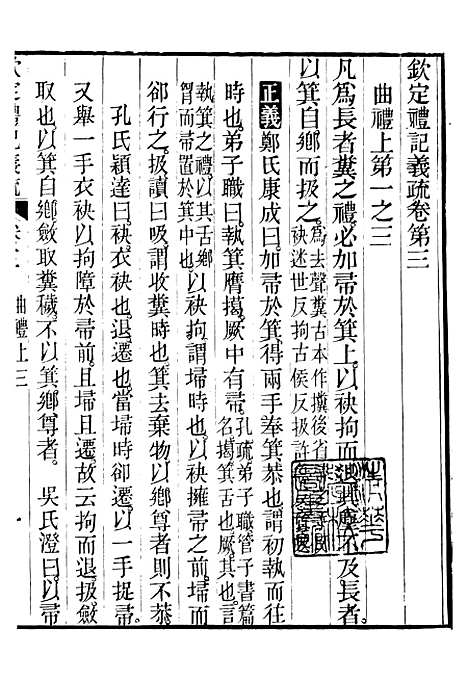 欽定禮記義疏卷第三
曲禮上第一之三
凡為長者糞之禮必加帚於箕上以袂拘而退其塵不及長者
以箕自鄉而扱之為去聲糞古本作㩹後省
袂迷世反拘古侯反扱許
正義鄭氏康成曰加帚於箕得兩手奉箕恭也謂初執而往
時也弟子職曰執箕膺擖厥中有帚孔疏弟子職管子書篇
名擖箕舌也厥其也言
執箕之禮以其舌鄉
胷而帚置於箕中也以袂拘謂埽時也以袂擁帚之前埽而
卻行之扱讀曰吸謂收糞時也箕去棄物以鄉尊者則不恭
孔氏穎達曰袂衣袂也退遷也當埽時卻遷以一手捉帚
又舉一手衣袂以拘障於帚前且埽且遷故云拘而退扱斂
取也以箕自鄉斂取糞穢不以箕鄉尊者 吳氏澄曰以帚
曲禮上三